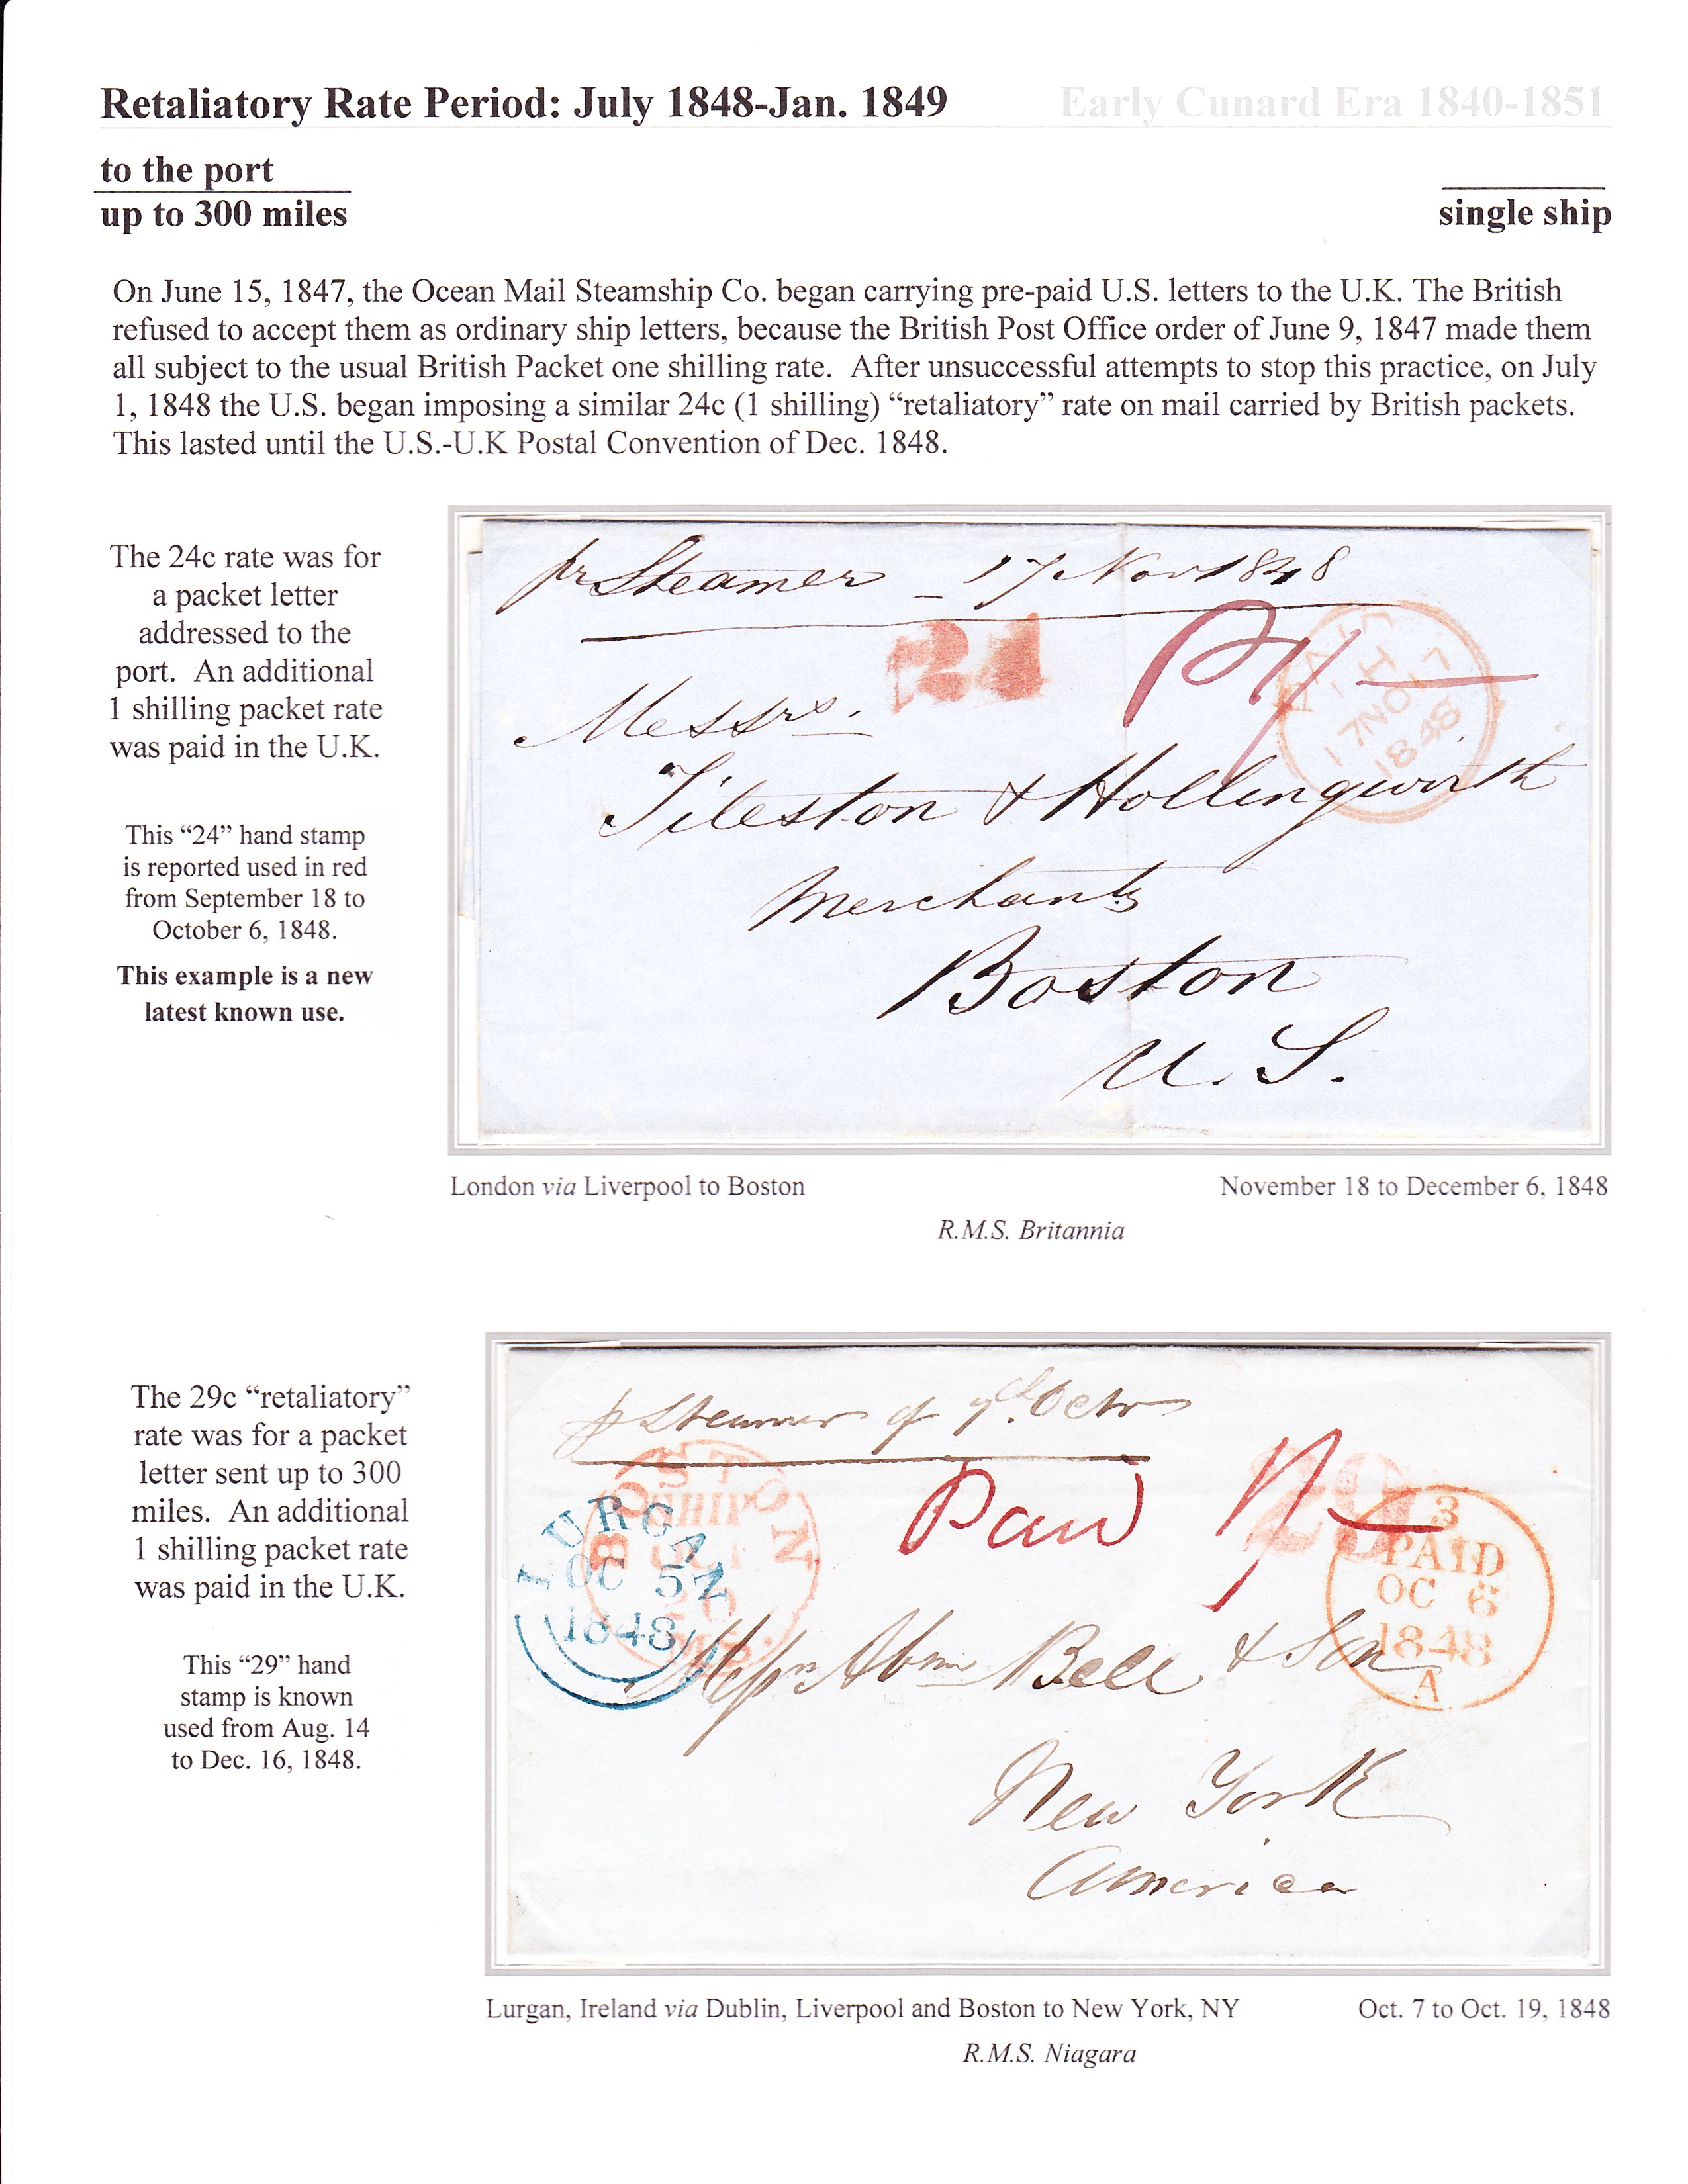 Retaliatory Rate Period: July 1848-Jan. 1849
Early Cunard Era 1840-1851
to the port
up to 300 miles
single ship
On June 15, 1847, the Ocean Mail Steamship Co. began carrying pre-paid U.S. letters to the U.K. The British
refused to accept them as ordinary ship letters, because the British Post Office order of June 9, 1847 made them
all subject to the usual British Packet one shilling rate. After unsuccessful attempts to stop this practice, on July
1, 1848 the U.S. began imposing a similar 24c (1 shilling) “retaliatory” rate on mail carried by British packets.
This lasted until the U.S.-U.K Postal Convention of Dec. 1848.
The 24c rate was for
a packet letter
addressed to the
port. An additional
1 shilling packet rate
was paid in the U.K.
This “24” hand stamp
is reported used in red
from September 18 to
October 6, 1848.
This example is a new
latest known use.
pr Steamer _ 17 Nov 1848
24
17 NO
1848
Messrs.
Tileston & Hollingworth
Merchants
Boston
U. S.
London via Liverpool to Boston
November 18 to December 6, 1848
R.M.S. Britannia
The 29c “retaliatory”
rate was for a packet
letter sent up to 300
miles. An additional
1 shilling packet rate
was paid in the U.K.
This “29” hand
stamp is known
used from Aug. 14
to Dec. 16, 1848.
p Steamer of 7th Octr
BOSTON
SHIP
OCT
LURGAN
OC 5
1848
Paid 1/-
29
3
PAID
OC 6
1848
A
Messrs Abm Bell & Son
New York
America
Lurgan, Ireland via Dublin, Liverpool and Boston to New York, NY
Oct. 7 to Oct. 19, 1848
R.M.S. Niagara